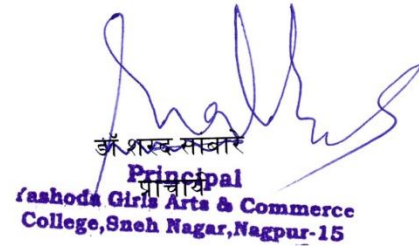 डॉ शरद साबारे
Principal
प्राचार्य
Yashoda Girls Arts & Commerce
College,Sneh Nagar,Nagpur-15